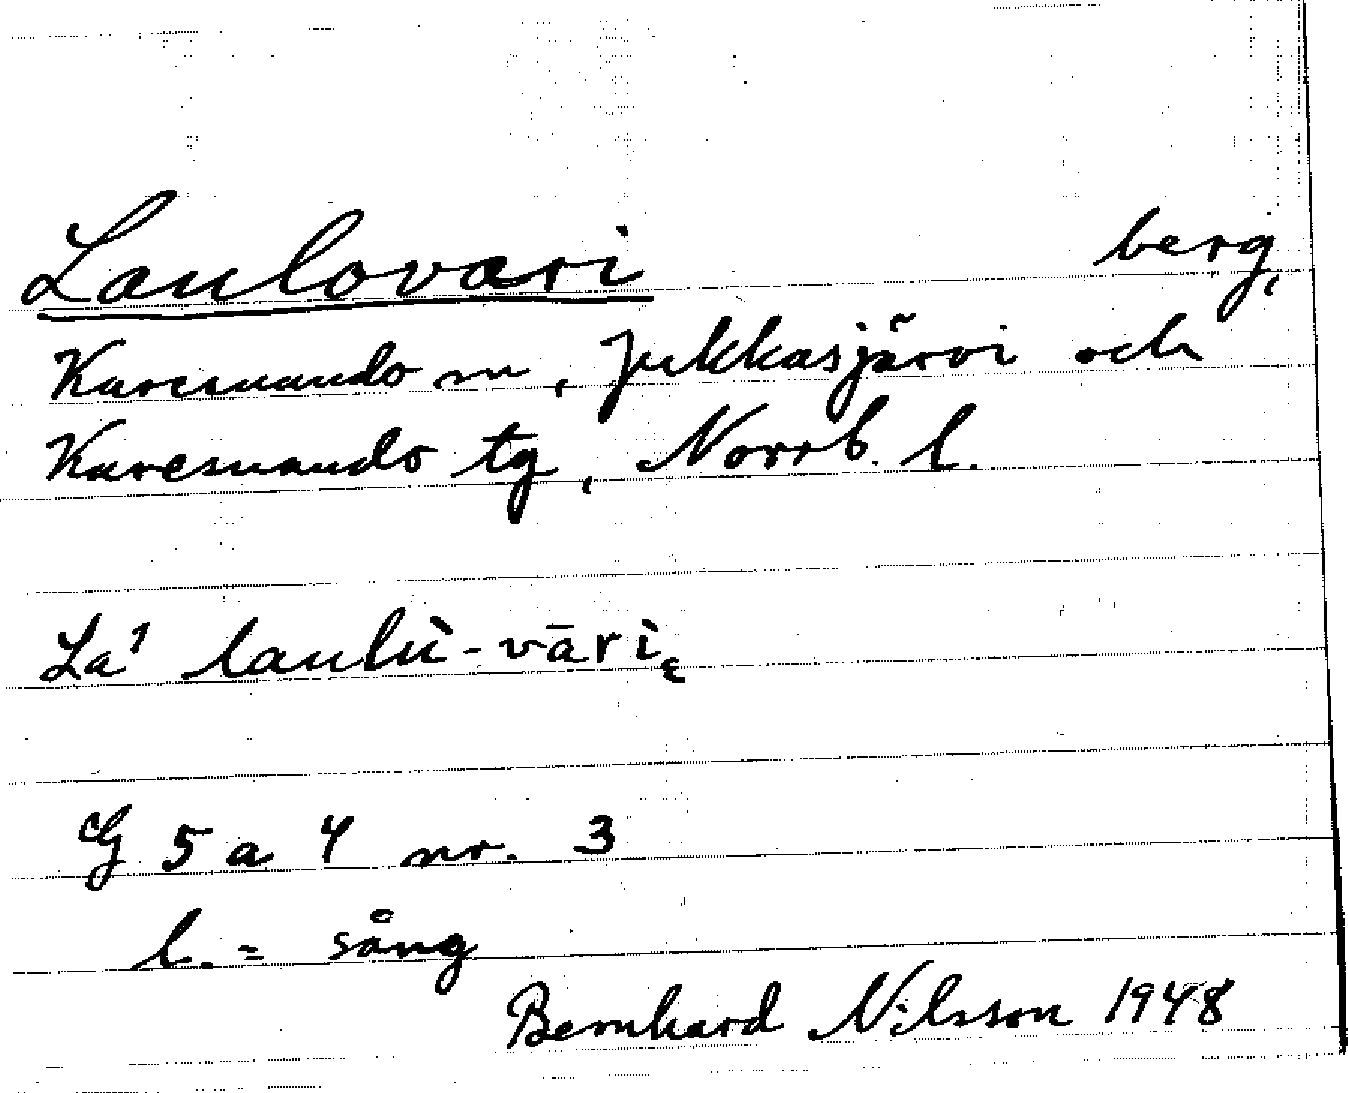 Laulovari berg,
Karesuando sn, Jukkasjärvi och
Karesuando tg, Norrb. l.
La¹ laulu̇̀-vāri̇̀
G 5 a 4 nr. 3
l. = sång
Bernhard Nilsson 1948